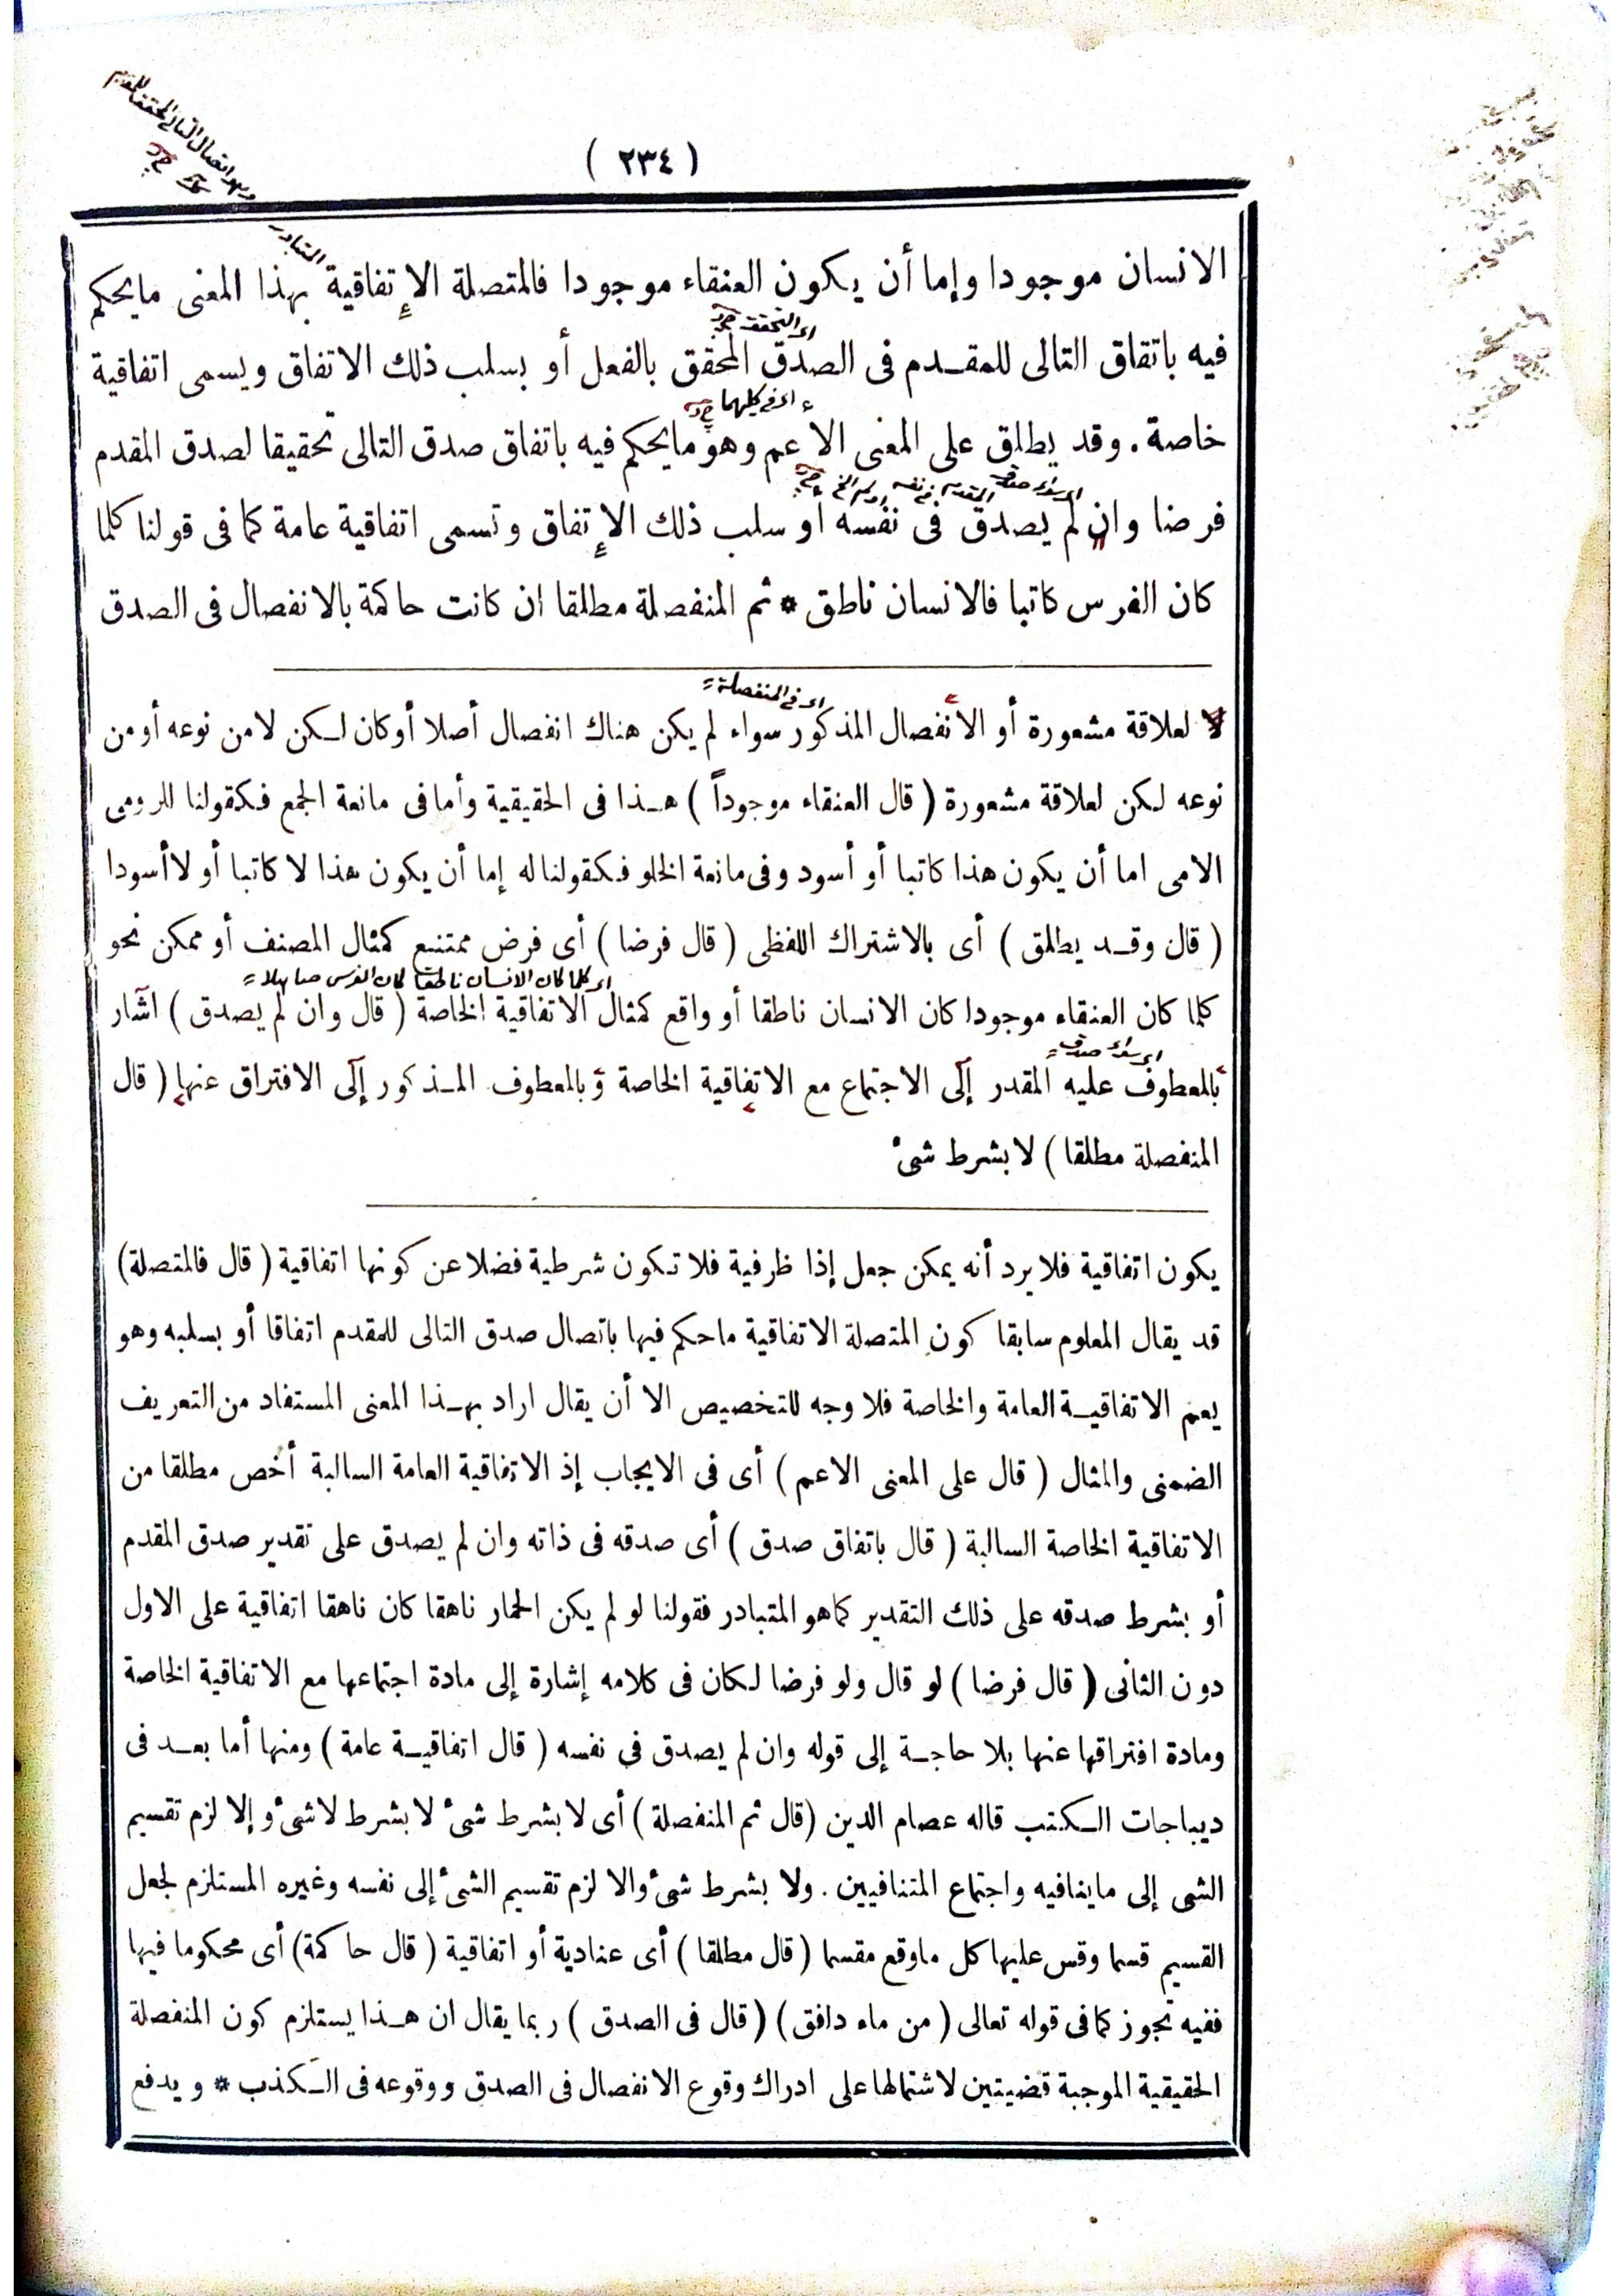 ( ٢٣٤ )
الانسان موجودا وإما أن يكون العنقاء موجودا فالمتصلة الإتفاقية بهذا المعنى مايحكم
المتبادر
فيه باتفاق التالى للمقـدم فى الصدق المحقق بالفعل أو بسلب ذلك الاتفاق ويسمى اتفاقية
اى التحقق
خاصة . وقد يطلق على المعنى الاعم وهو مايحكم فيه باتفاق صدق التالى تحقيقا لصدق المقدم
اى فى كليهما
فرضا وان لم يصدق فى نفسه أو سلب ذلك الإتفاق وتسمى اتفاقية عامة كما فى قولنا كلما
اى سواء صدق المقدم فى نفسه
كان الفرس كاتبا فالانسان ناطق * ثم المنفصلة مطلقا ان كانت حاكمة بالانفصال فى الصدق
لا لعلاقة مشعورة أو الانفصال المذكور سواء لم يكن هناك انفصال أصلا أوكان لـكن لامن نوعه أومن
اى فى المنفصلة
نوعه لـكن لعلاقة مشعورة ( قال العنقاء موجوداً ) هـذا فى الحقيقية وأما فى مانعة الجمع فـكقولنا للرومى
الامى اما أن يكون هذا كاتبا أو أسود وفى مانعة الخلو فـكقولنا له إما أن يكون هذا لا كاتبا أو لا أسودا
( قال وقـد يطلق ) أى بالاشتراك اللفظى ( قال فرضا ) أى فرض ممتنع كمثال المصنف أو ممكن نحو
كلما كان العنقاء موجودا كان الانسان ناطقا أو واقع كمثال الاتفاقية الخاصة ( قال وان لم يصدق ) اشار
اى كلما كان الانسان ناطقا كان الفرس صاهلا
بالمعطوف عليه المقدر إلى الاجتماع مع الاتفاقية الخاصة وبالمعطوف المـذكور إلى الافتراق عنها ( قال
اى سواء صدق
المنفصلة مطلقا ) لا بشرط شىء
يكون اتفاقية فلا يرد أنه يمكن جعل إذا ظرفية فلا تكون شرطية فضلا عن كونها اتفاقية ( قال فالمتصلة )
قد يقال المعلوم سابقا كون المتصلة الاتفاقية ماحكم فيها باتصال صدق التالى للمقدم اتفاقا أو بسلبه وهو
يعم الاتفاقيـة العامة والخاصة فلا وجه للتخصيص الا أن يقال اراد بهـذا المعنى المستفاد من التعريف
الضمنى والمثال ( قال على المعنى الاعم ) أى فى الايجاب إذ الاتفاقية العامة السالبة أخص مطلقا من
الاتفاقية الخاصة السالبة ( قال باتفاق صدق ) أى صدقه فى ذاته وان لم يصدق على تقدير صدق المقدم
أو بشرط صدقه على ذلك التقدير كما هو المتبادر فقولنا لو لم يكن الحمار ناهقا كان ناهقا اتفاقية على الاول
دون الثانى ( قال فرضا ) لو قال ولو فرضا لـكان فى كلامه إشارة إلى مادة اجتماعها مع الاتفاقية الخاصة
ومادة افتراقها عنها بلا حاجـة إلى قوله وان لم يصدق فى نفسه ( قال اتفاقيـة عامة ) ومنها أما بعـد فى
ديباجات الـكتب قاله عصام الدين ( قال ثم المنفصلة ) أى لا بشرط شىء لا بشرط لا شىء وإلا لزم تقسيم
الشى إلى ماينافيه واجتماع المتنافيين . ولا بشرط شىء والا لزم تقسيم الشىء إلى نفسه وغيره المستلزم لجعل
القسيم قسما وقس عليها كل ماوقع مقسما ( قال مطلقا ) أى عنادية أو اتفاقية ( قال حاكمة ) أى محكوما فيها
ففيه تجوز كما فى قوله تعالى ( من ماء دافق ) ( قال فى الصدق ) ربما يقال ان هـذا يستلزم كون المنفصلة
الحقيقية الموجبة قضيتين لاشتمالها على ادراك وقوع الانفصال فى الصدق ووقوعه فى الـكذب * ويدفع